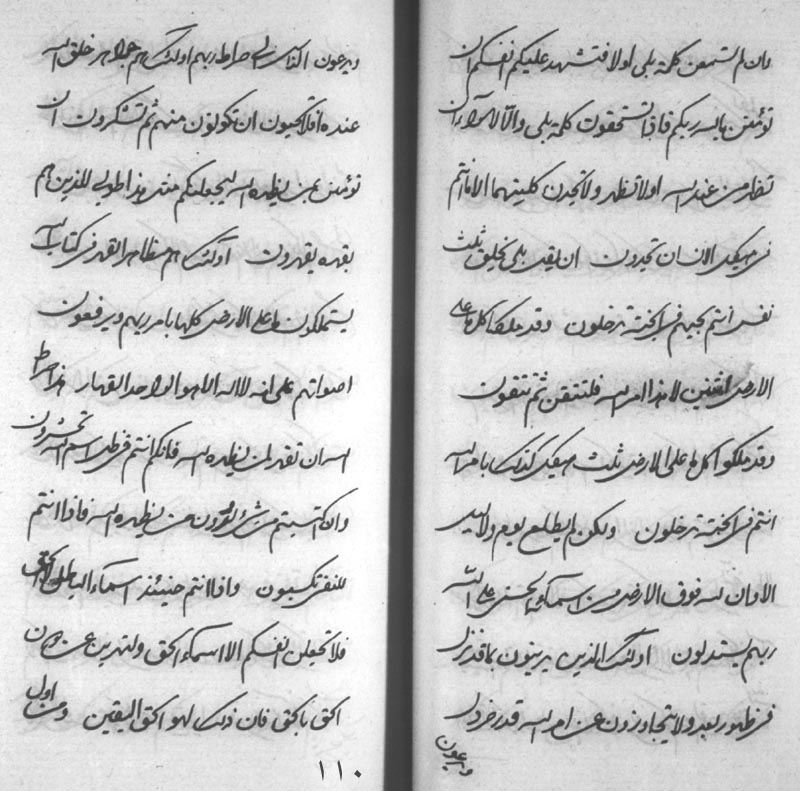 وان لم تستمعن كلمة بلى اولا فتشهد عليكم انفسكم ان
تؤمنن بالله ربكم فاذا تستحقون كلمة بلى والا لا
من عند الله اولا تظهر ولا تجدن كلمتيهما الا ما انتم
في هيكل الانسان تجدون ان يقل بلى يخلق ثلث
نفس انتم بحبهم في الجنة تدخلون وقد ملك كلما على
الارض اثنين لا هذا امر الله فلتتقن ثم تتقون
وقد ملكوا كل ما على الارض ثلث هيكل كذلك بامر الله
انتم في الجنة تدخلون ولكن لم يطلع يوم ولا ليل
الا وان لله فوق الارض من اسمائه الحسنى على الله
ربهم يستدلون اولئك الذين يدينون بما قد نزل
في ظهور بعد ولا يتجاوزون عن امر الله قدر خردل
ويدعون
ويدعون الناس الى صراط ربهم اولئك هم جواهر خلق الله
عنده افلا تحبون ان تكونون منهم ثم تشكرون ان
تؤمنن بمن يظهره الله ليجعلنكم مثل هذا طوبى للذين هم
بقهره يقهرون اولئك هم مظاهر القهر في كتاب الله
يستملكون ما على الارض كلها بامر ربهم ويرفعون
اصواتهم على انه لا اله الا هو الواحد القهار هذا صراط
الله ان تقهر لمن يظهره الله فانكم انتم في ظل اسم الله تحشرون
وان اكتسبتم من شيء دون من يظهره الله فاذا انتم
للنفس تكسبون واذا انتم حينئذ اسماء الباطل
فلا تجعلن انفسكم الا اسماء الحق ولتهربن عن دون
الحق بالحق فان ذلك لهو الحق اليقين ومن اول
١١٠